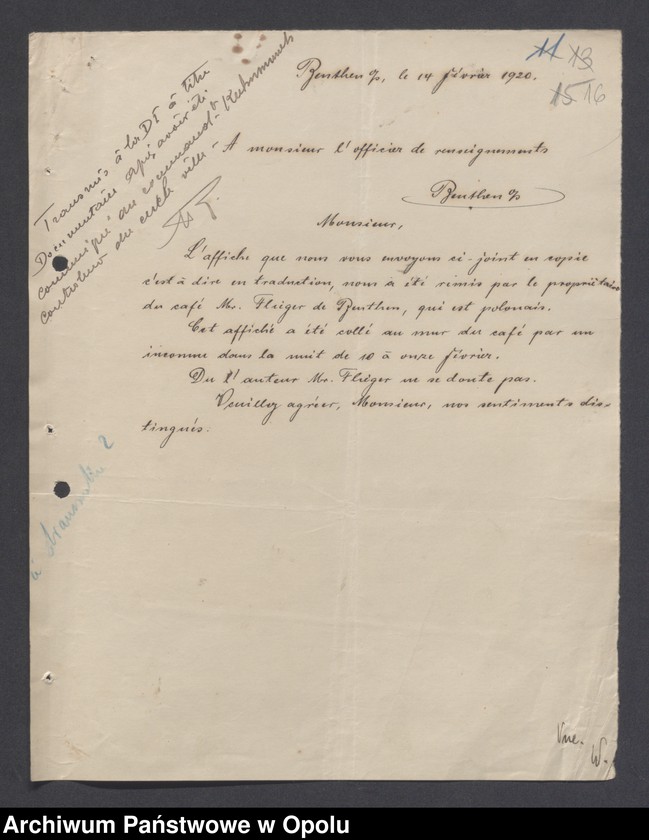 11 13
15 16
Beuthen o/s, le 14 février 1920.
Transmis à la DI à titre
Documentaire après avoir été
communiqué au command^t
controleur du cercle ville
A monsieur l'officier de renseignements
Beuthen o/s
Monsieur,
L'affiche que nous vous envoyons ci-joint en copie
c'est à dire en traduction, nous a été remis par le propriétaire
du café Mr. Flieger de Beuthen, qui est polonais.
Cet affiché a été collé au mur du café par un
inconnu dans la nuit de 10 à onze février.
Du l'auteur Mr. Flieger ne se doute pas.
Veuillez agréer, Monsieur, nos sentiments dis-
tingués.
à transmettre 2
Vne.
W.
Archiwum Państwowe w Opolu